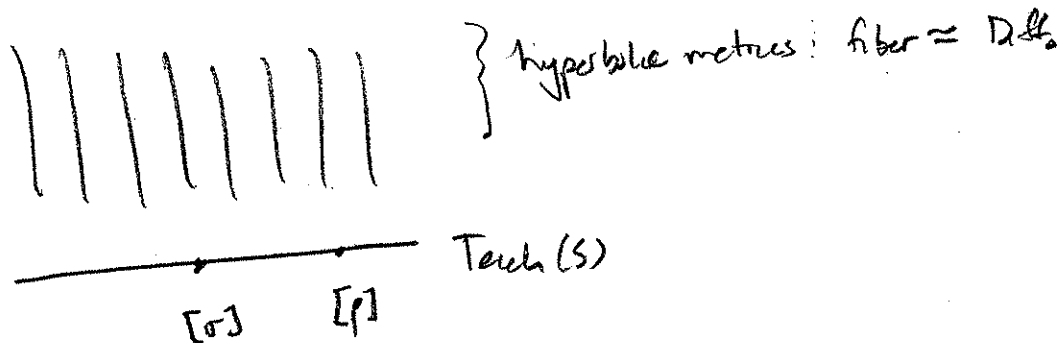 } hyperbolic metrics : fiber ≈ Diff₀
Teich (S)
[σ] [ρ]